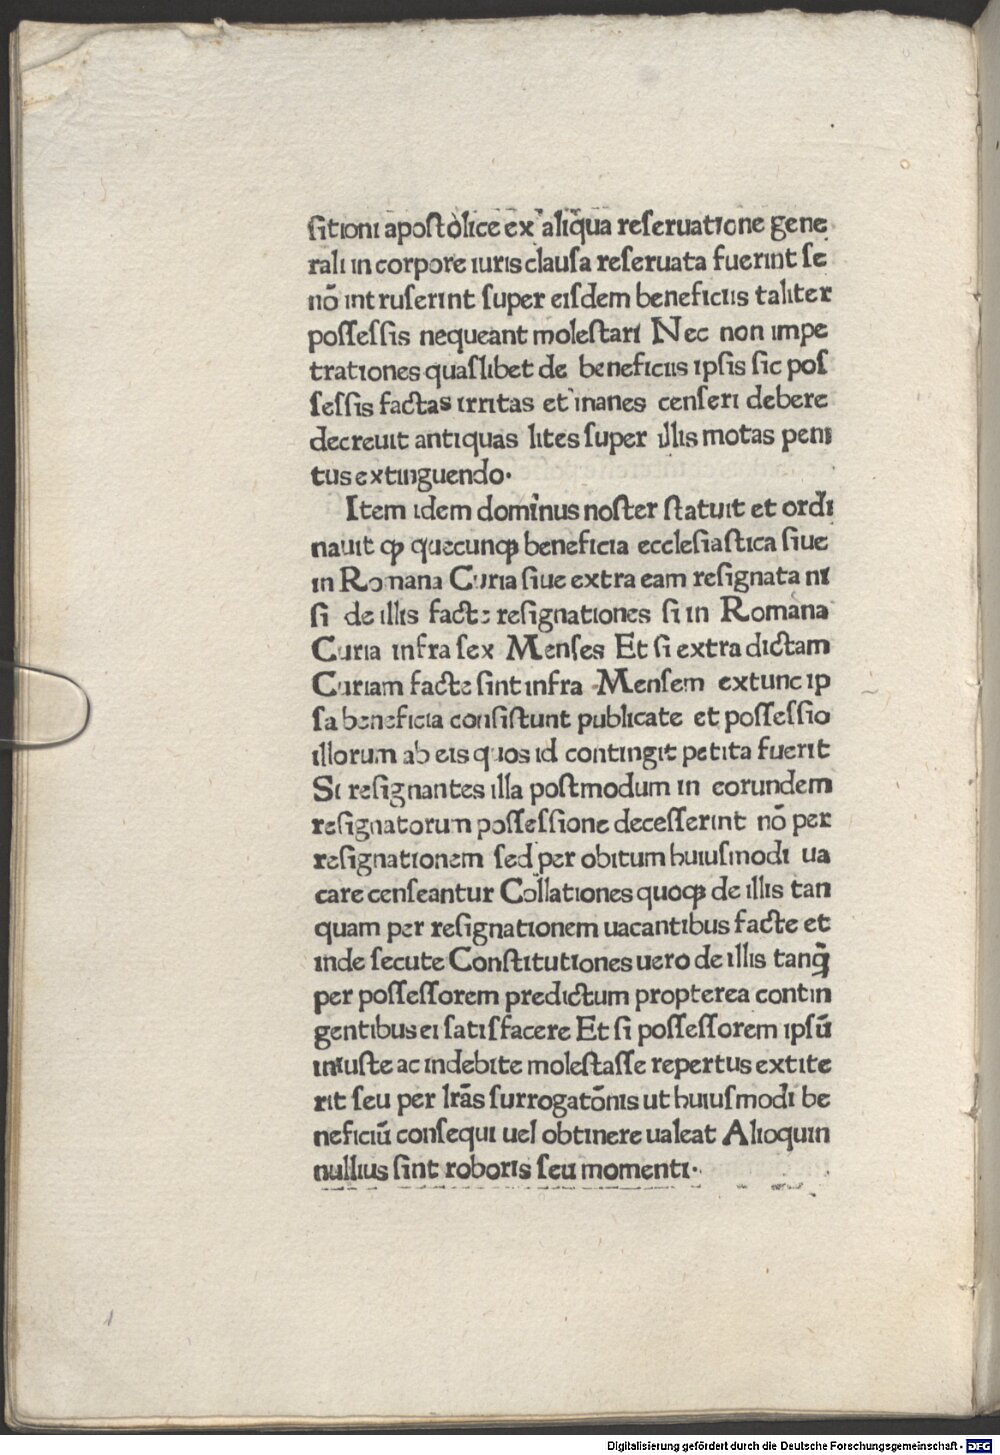 sitioni apostolice ex aliq̄ua reseruatione gene
rali in corpore iuris clausa reseruata fuerint se
nō intruserint super eisdem beneficiis taliter
possessis nequeant molestari Nec non impe
trationes quaslibet de beneficiis ipsis sic pos
sessis factas irritas et inanes censeri debere
decreuit antiquas lites super illis motas peni
tus extinguendo.
Item idem dominus noster statuit et ordi
nauit ꝙ quecunqꝫ beneficia ecclesiastica siue
in Romana Curia siue extra eam resignata ni
si de illis facte resignationes si in Romana
Curia infra sex Menses Et si extra dictam
Curiam facte sint infra Mensem extunc ip
sa beneficia consistunt publicate et possessio
illorum ab eis quos id contingit petita fuerit
Si resignantes illa postmodum in eorundem
resignatorum possessione decesserint nō per
resignationem sed per obitum huiusmodi ua
care censeantur Collationes quoqꝫ de illis tan
quam per resignationem uacantibus facte et
inde secute Constitutiones uero de illis tanq̄
per possessorem predictum propterea contin
gentibus ei satisfacere Et si possessorem ipsū
iniuste ac indebite molestasse repertus extite
rit seu per lrās surrogatōnis ut huiusmodi be
neficiū consequi uel obtinere ualeat Alioquin
nullius sint roboris seu momenti.
Digitalisierung gefördert durch die Deutsche Forschungsgemeinschaft - DFG